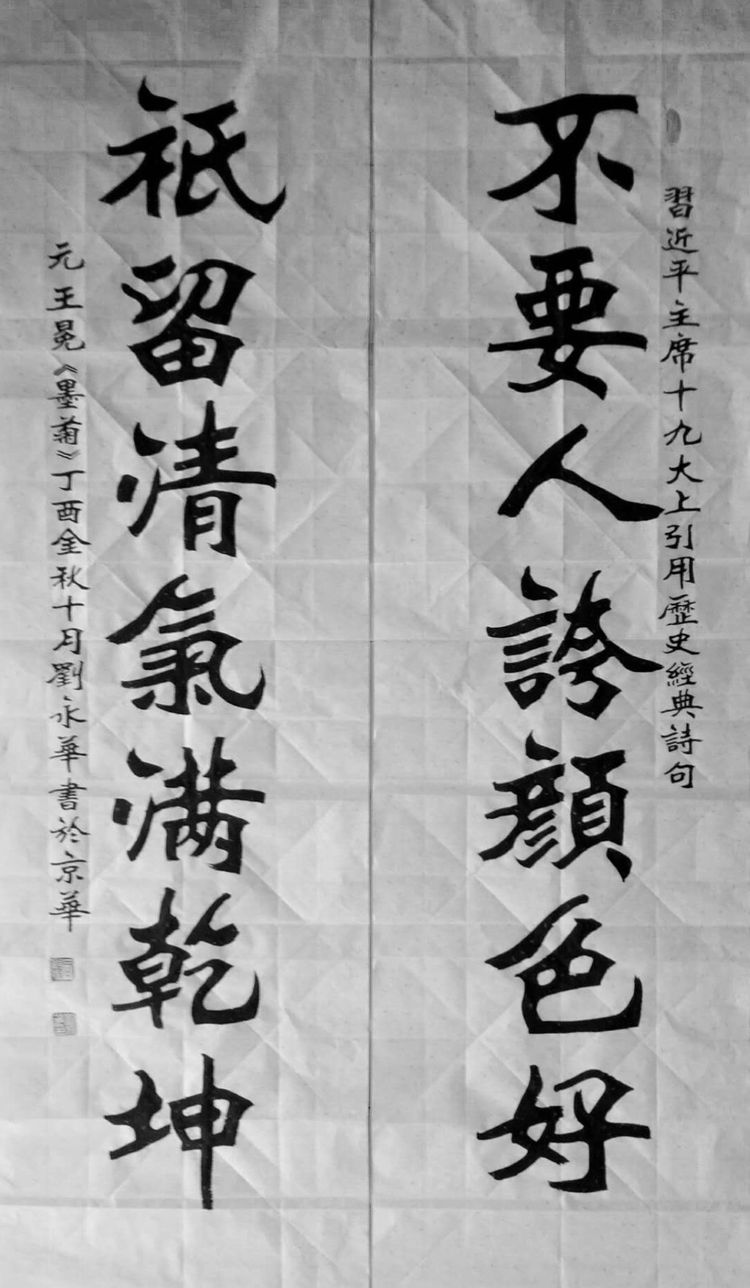 習近平主席十九大上引用歷史經典詩句
不要人誇顏色好
祇留清氣滿乾坤
元王冕《墨菊》丁酉金秋十月劉永華書於京華